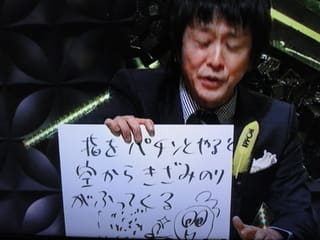 指をパチンとやると
空からきざみのり
がふってくる
IPPON